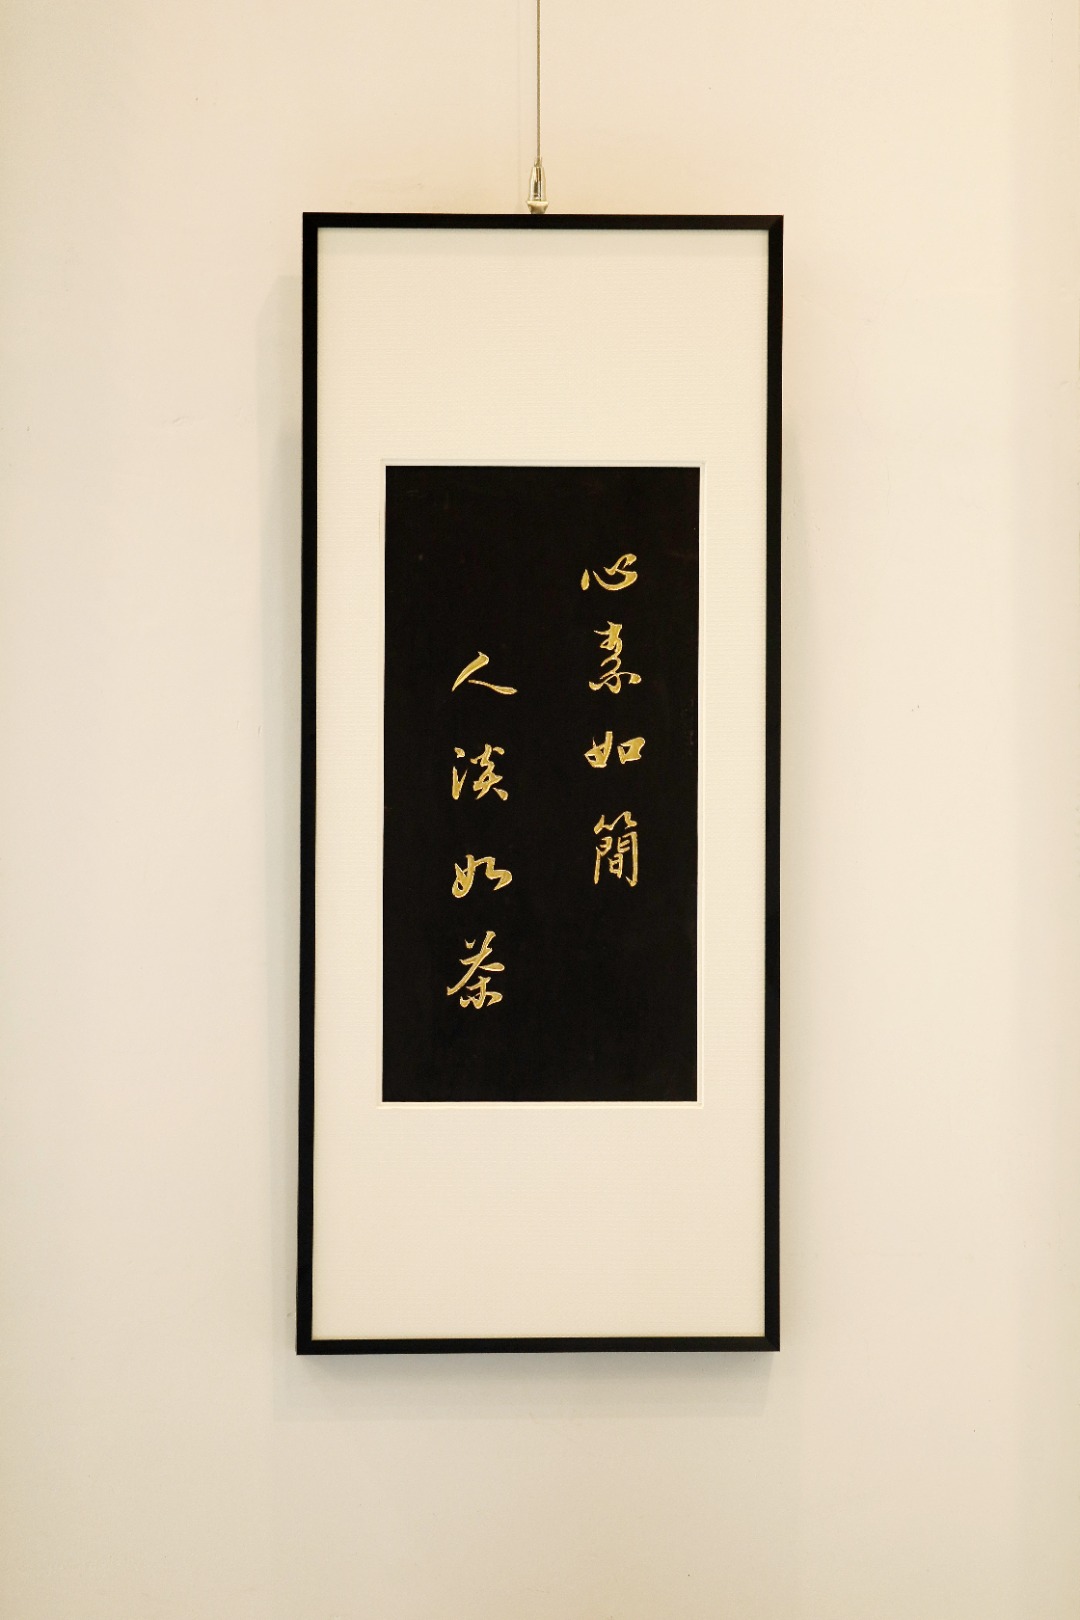 心素如簡
人淡如茶